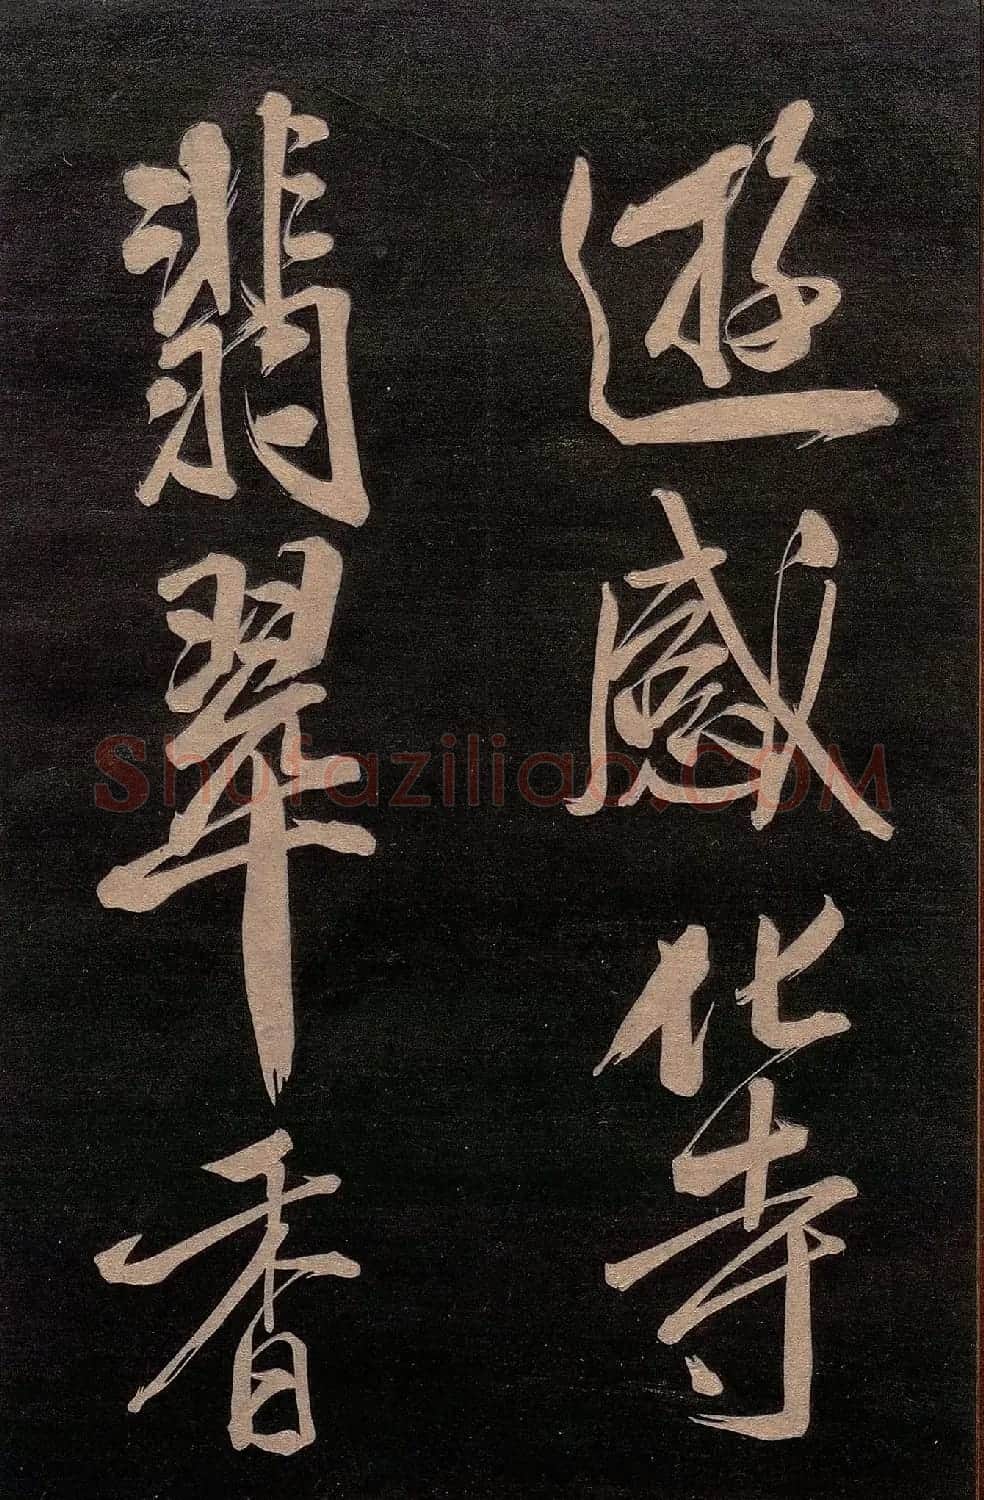 遊感化寺
翡翠香
Shufaziliao.COM